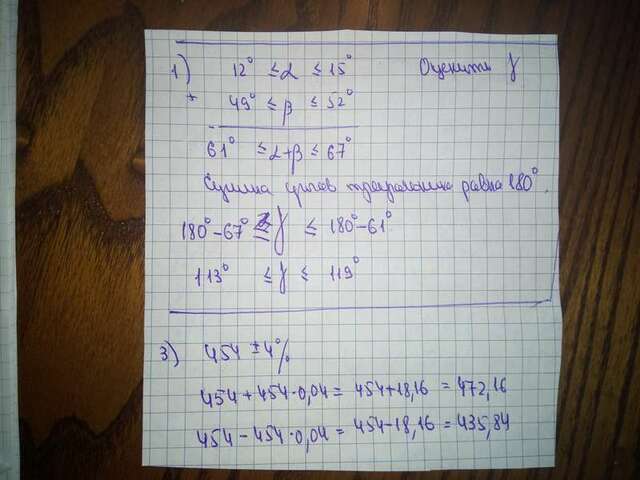 1) 12° ≤ α ≤ 15° Оценить γ
+ 49° ≤ β ≤ 52°
61° ≤ α+β ≤ 67°
Сумма углов треугольника равна 180°
180° - 67° ≤ γ ≤ 180° - 61°
113° ≤ γ ≤ 119°
3) 454 ± 4%
454 + 454·0,04 = 454 + 18,16 = 472,16
454 - 454·0,04 = 454 - 18,16 = 435,84